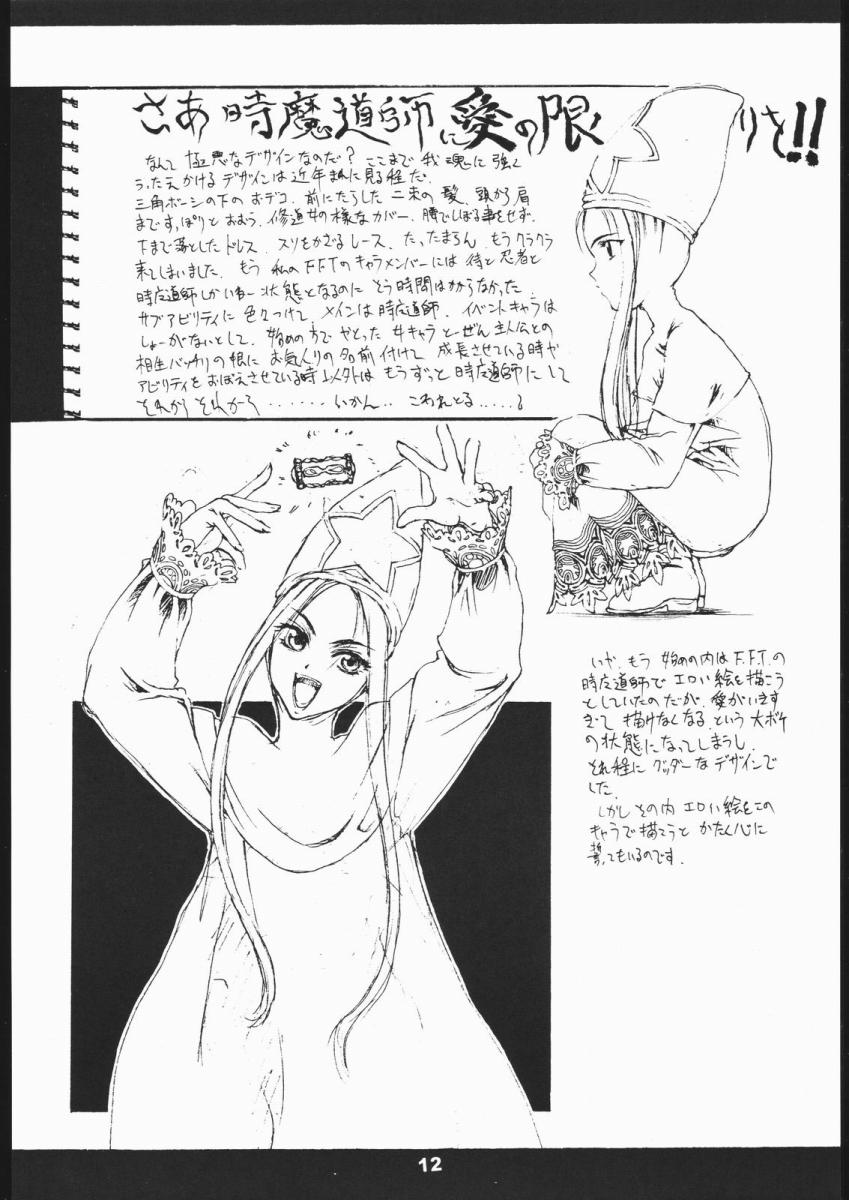 さあ 時魔道師に愛の限りを!!
なんて 極悪なデザインなのだ? ここまで 我 魂に 強く
うったえかけるデザインは近年まれに見る程だ.
三角ボーシの下のおデコ. 前にたらした 二束の髪、頭から肩
まですっぽりと おおう. 修道女の様なカバー. 腰でしぼる事をせず.
下まで落としたドレス. スソをかざるレース. たったまらん. もうクラクラ
来てしまいました. もう 私のF.F.Tのキャラメンバーには 侍と忍者と
時魔道師しかいねー状態となるのに そう時間はかからなかった.
サブアビリティに 色々つけて メインは時魔道師. イベントキャラは
しょーがないとして. 始めの方で やとった 女キャラ とーぜん 主人公との
相生バッチリの娘に お気入りの名前付けて 成長させている時や
アビリティをおぼえさせている時以外は もうずっと 時魔道師にして
それから それから・・・・・・いかん・・ こわれとる・・・・・
いや. もう 始めの内はF.F.T.の
時魔道師で エロい絵を描こう
としていたのだが. 愛がいきす
ぎて 描けなくなる. という 大ボケ
の状態になってしまうし.
それ程に グッダーなデザインで
した.
しかし その内 エロい絵をこの
キャラで描こうと かたく心に
誓ってもいるのです.
12